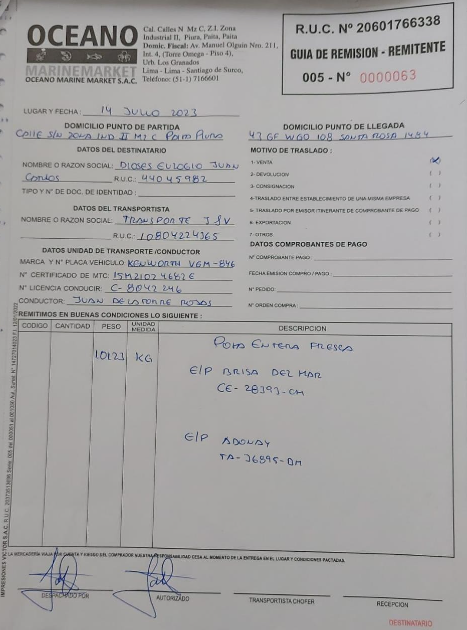 OCEANO
MARINEMARKET
OCEANO MARINE MARKET S.A.C.
Cal. Calles N Mz C, Z.I. Zona
Industrial II, Piura, Paita, Paita
Domic. Fiscal: Av. Manuel Olguin Nro. 211,
Int. 4, (Torre Omega - Piso 4),
Urb. Los Granados
Lima - Lima - Santiago de Surco,
Teléfono: (51-1) 7166601
R.U.C. Nº 20601766338
GUIA DE REMISION - REMITENTE
005 - Nº 0000063
LUGAR Y FECHA: 14 JULIO 2023
DOMICILIO PUNTO DE PARTIDA
CALLE S/N ZONA IND II MZ C
DOMICILIO PUNTO DE LLEGADA
108 SANTA ROSA
DATOS DEL DESTINATARIO
NOMBRE O RAZON SOCIAL: DIOSES EULOGIO JUAN
CARLOS R.U.C.: 44045982
TIPO Y Nº DE DOC. DE IDENTIDAD:
MOTIVO DE TRASLADO:
1- VENTA (X)
2- DEVOLUCION ( )
3- CONSIGNACION ( )
4-TRASLADO ENTRE ESTABLECIMIENTO DE UNA MISMA EMPRESA ( )
5- TRASLADO POR EMISOR ITINERANTE DE COMPROBANTE DE PAGO ( )
6- EXPORTACION ( )
7- OTROS ( )
DATOS DEL TRANSPORTISTA
NOMBRE O RAZON SOCIAL: TRANSPORTE J & V
R.U.C.: 10804224365
DATOS UNIDAD DE TRANSPORTE /CONDUCTOR
MARCA Y Nº PLACA VEHICULO: KENWORTH VGM-846
Nº CERTIFICADO DE MTC: 15M21024682E
Nº LICENCIA CONDUCIR: C-8042246
CONDUCTOR: JUAN DE LA TORRE ROSAS
DATOS COMPROBANTES DE PAGO
Nº COMPROBANTE PAGO:
FECHA EMISION COMPRO / PAGO:
Nº PEDIDO:
Nº ORDEN COMPRA:
REMITIMOS EN BUENAS CONDICIONES LO SIGUIENTE :
CODIGO CANTIDAD PESO UNIDAD MEDIDA DESCRIPCION
10123 KG POTA ENTERA FRESCA
E/P BRISA DEL MAR
CE-28393-CM
E/P ADONAY
TA-36895-BM
LA MERCADERIA VIAJA POR CUENTA Y RIESGO DEL COMPRADOR NUESTRA RESPONSABILIDAD CESA AL MOMENTO DE LA ENTREGA EN EL LUGAR Y CONDICIONES PACTADAS.
DESPACHADO POR
AUTORIZADO
TRANSPORTISTA CHOFER
RECEPCION
DESTINATARIO